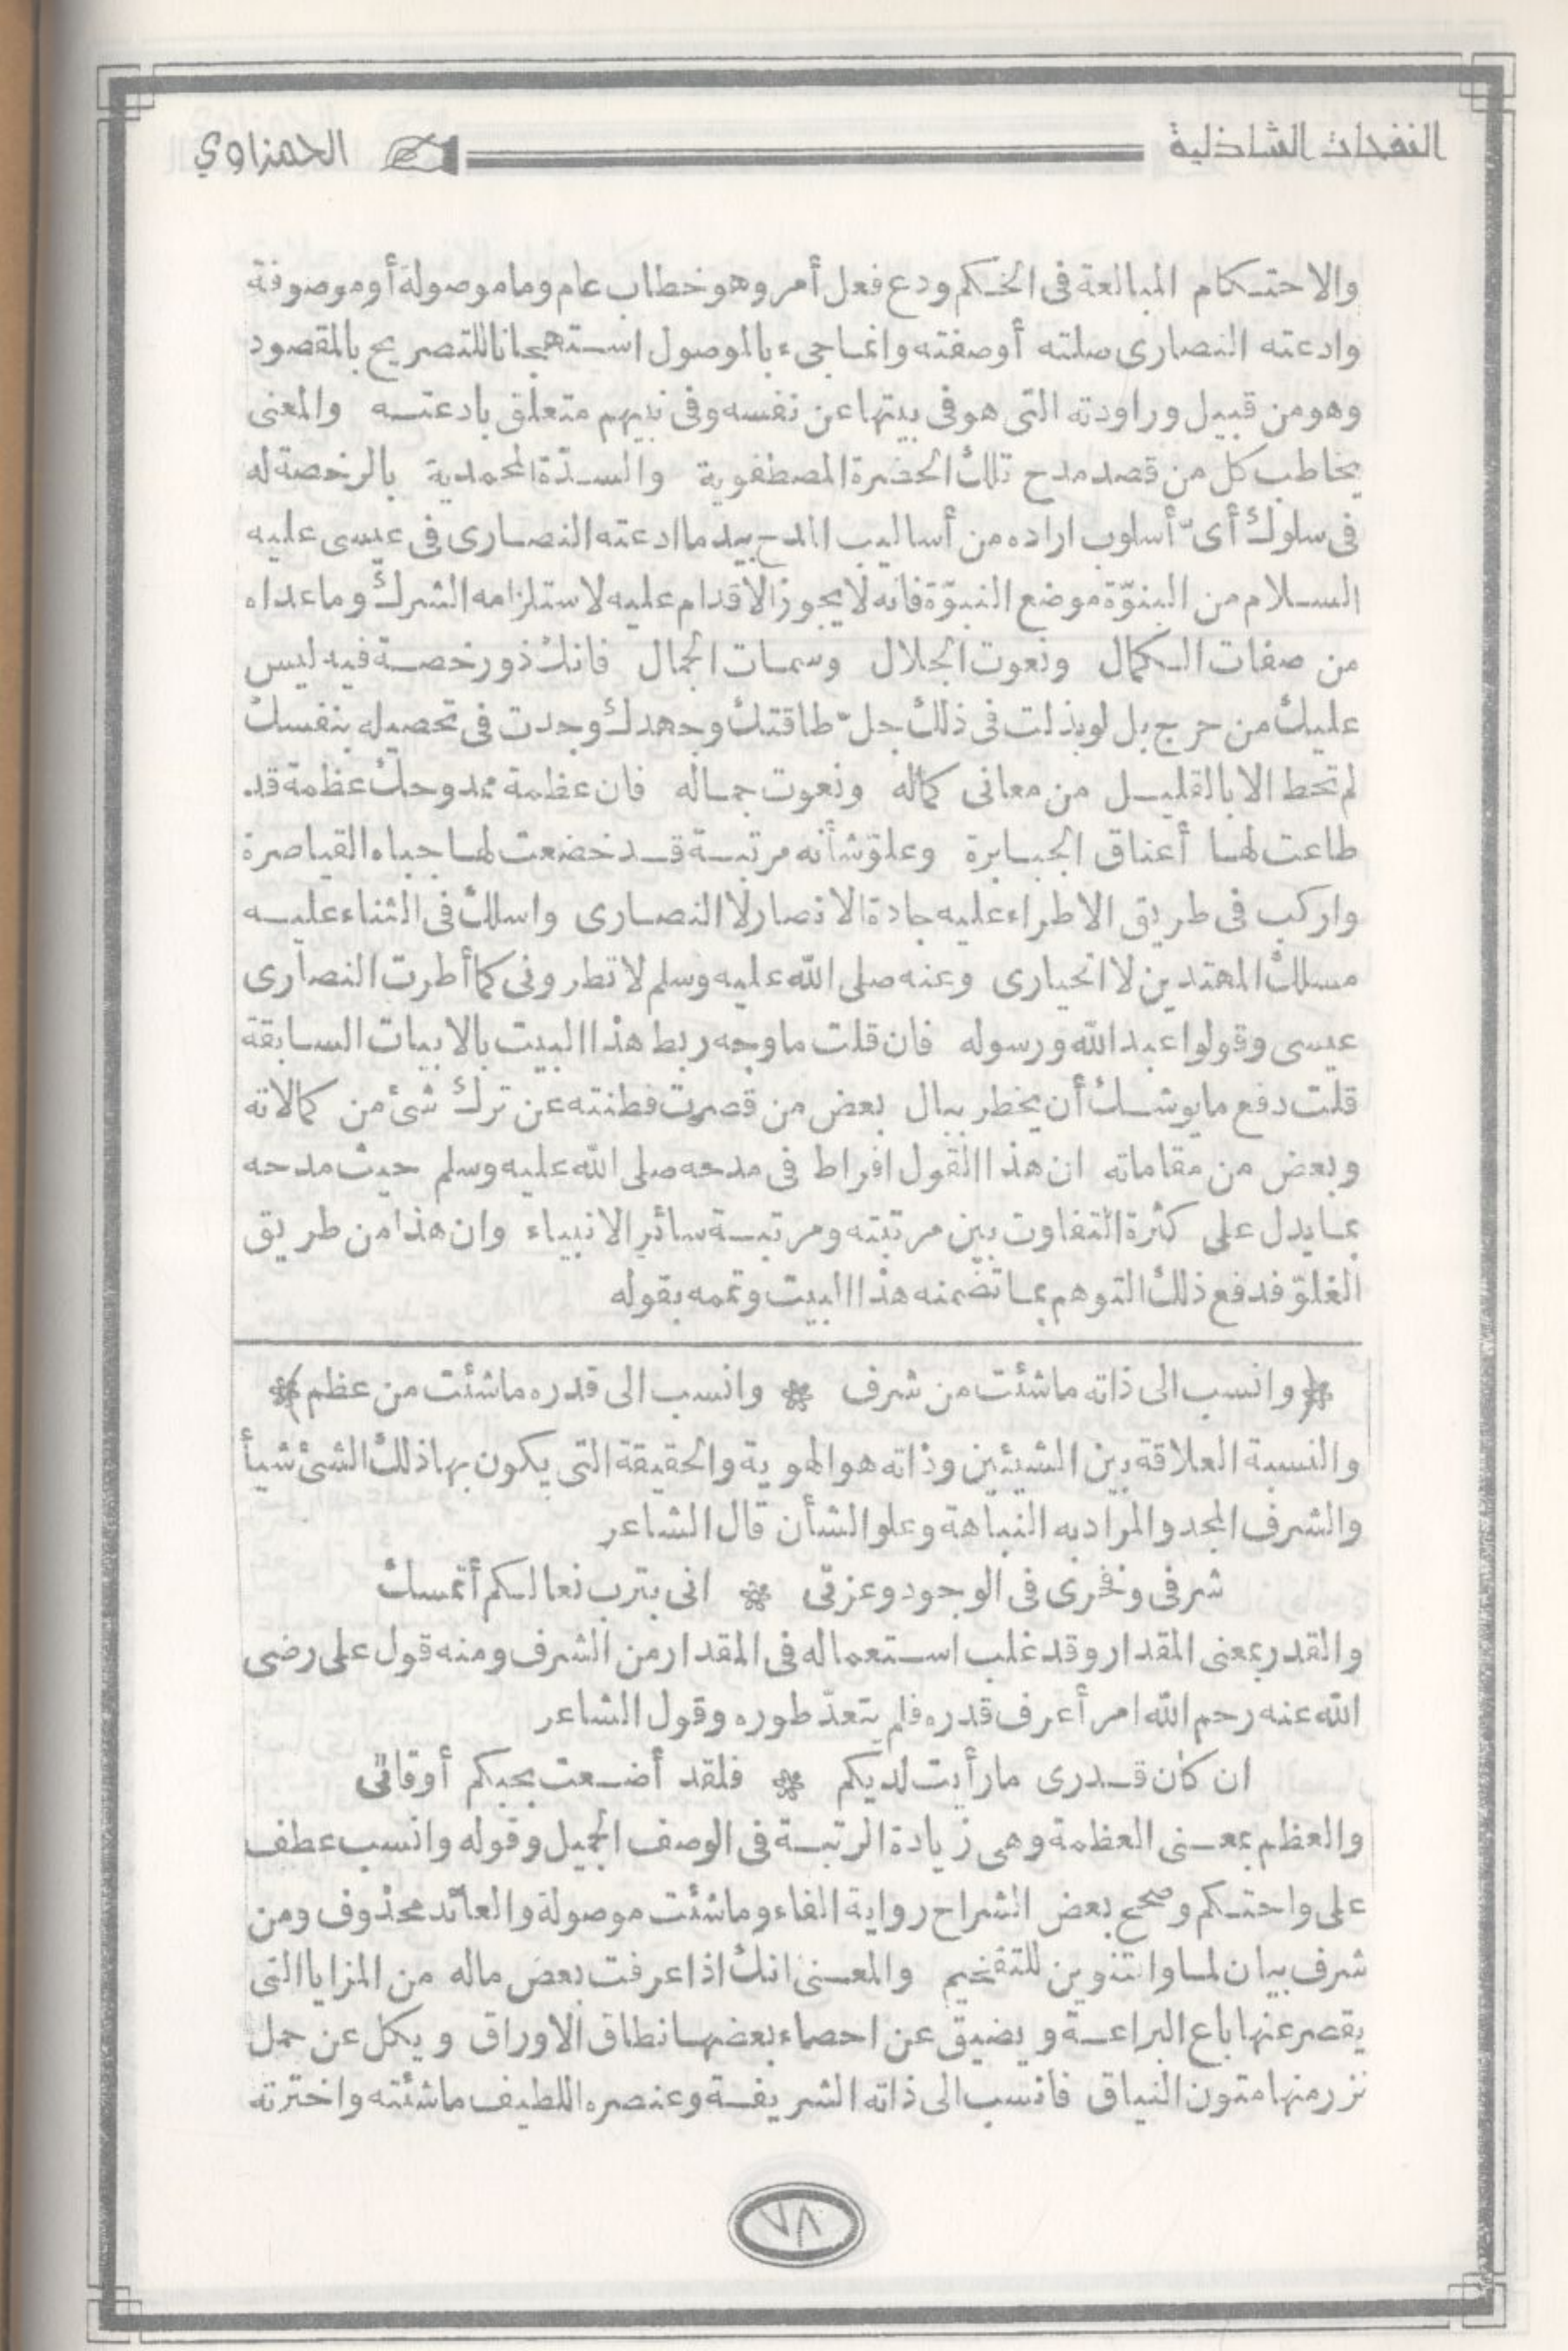 النفحات الشاذلية
الحمزاوي
والاحتكام المبالغة فى الحكم ودع فعل أمر وهو خطاب عام وما موصولة أو موصوفة
وادعته النصارى صلته أو صفته وانما جىء بالموصول استهجانا للتصريح بالمقصود
وهو من قبيل وراودته التى هو فى بيتها عن نفسه وفى نبيهم متعلق بادعته والمعنى
يخاطب كل من قصد مدح تلك الحضرة المصطفوية والسدّة المحمدية بالرخصة له
فى سلوك أىّ أسلوب اراده من أساليب المدح بيد ما ادعته النصارى فى عيسى عليه
السلام من البنوّة موضع النبوّة فانه لا يجوز الاقدام عليه لاستلزامه الشرك وما عداه
من صفات الكمال ونعوت الجلال وسمات الجمال فانك ذو رخصة فيه ليس
عليك من حرج بل لو بذلت فى ذلك جلّ طاقتك وجهدك وجدت فى تحصيله بنفسك
لم تحط الا بالقليل من معانى كماله ونعوت جماله فان عظمة ممدوحك عظمة قد
طاعت لها أعناق الجبابرة وعلوّ شأنه مرتبة قد خضعت لها جباه القياصرة
واركب فى طريق الاطراء عليه جادة الانصار لا النصارى واسلك فى الثناء عليه
مسلك المهتدين لا الحيارى وعنه صلى الله عليه وسلم لا تطرونى كما أطرت النصارى
عيسى وقولوا عبد الله ورسوله فان قلت ما وجه ربط هذا البيت بالابيات السابقة
قلت دفع ما يوشك أن يخطر ببال بعض من قصرت فطنته عن ترك شئ من كمالاته
وبعض من مقاماته ان هذا القول افراط فى مدحه صلى الله عليه وسلم حيث مدحه
بما يدل على كثرة التفاوت بين مرتبته ومرتبة سائر الانبياء وان هذا من طريق
الغلوّ فدفع ذلك التوهم بما تضمنه هذا البيت وتممه بقوله
﴿وانسب الى ذاته ما شئت من شرف * وانسب الى قدره ما شئت من عظم﴾
والنسبة العلاقة بين الشيئين وذاته هو الهوية والحقيقة التى يكون بها ذلك الشئ شيأ
والشرف المجد والمراد به النباهة وعلو الشأن قال الشاعر
شرفى وفخرى فى الوجود وعزتى * انى بترب نعالكم أتمسك
والقدر بمعنى المقدار وقد غلب استعماله فى المقدار من الشرف ومنه قول على رضى
الله عنه رحم الله امرأ عرف قدره فلم يتعدّ طوره وقول الشاعر
ان كان قدرى ما رأيت لديكم * فلقد أضعت بحبكم أوقاتى
والعظم بمعنى العظمة وهى زيادة الرتبة فى الوصف الجميل وقوله وانسب عطف
على واحتكم وصحح بعض الشراح رواية الفاء وما شئت موصولة والعائد محذوف ومن
شرف بيان لما والتنوين للتفخيم والمعنى انك اذا عرفت بعض ماله من المزايا التى
يقصر عنها باع البراعة ويضيق عن احصاء بعضها نطاق الاوراق ويكل عن حمل
نزر منها متون النياق فانسب الى ذاته الشريفة وعنصره اللطيف ما شئته واخترته
٧٨